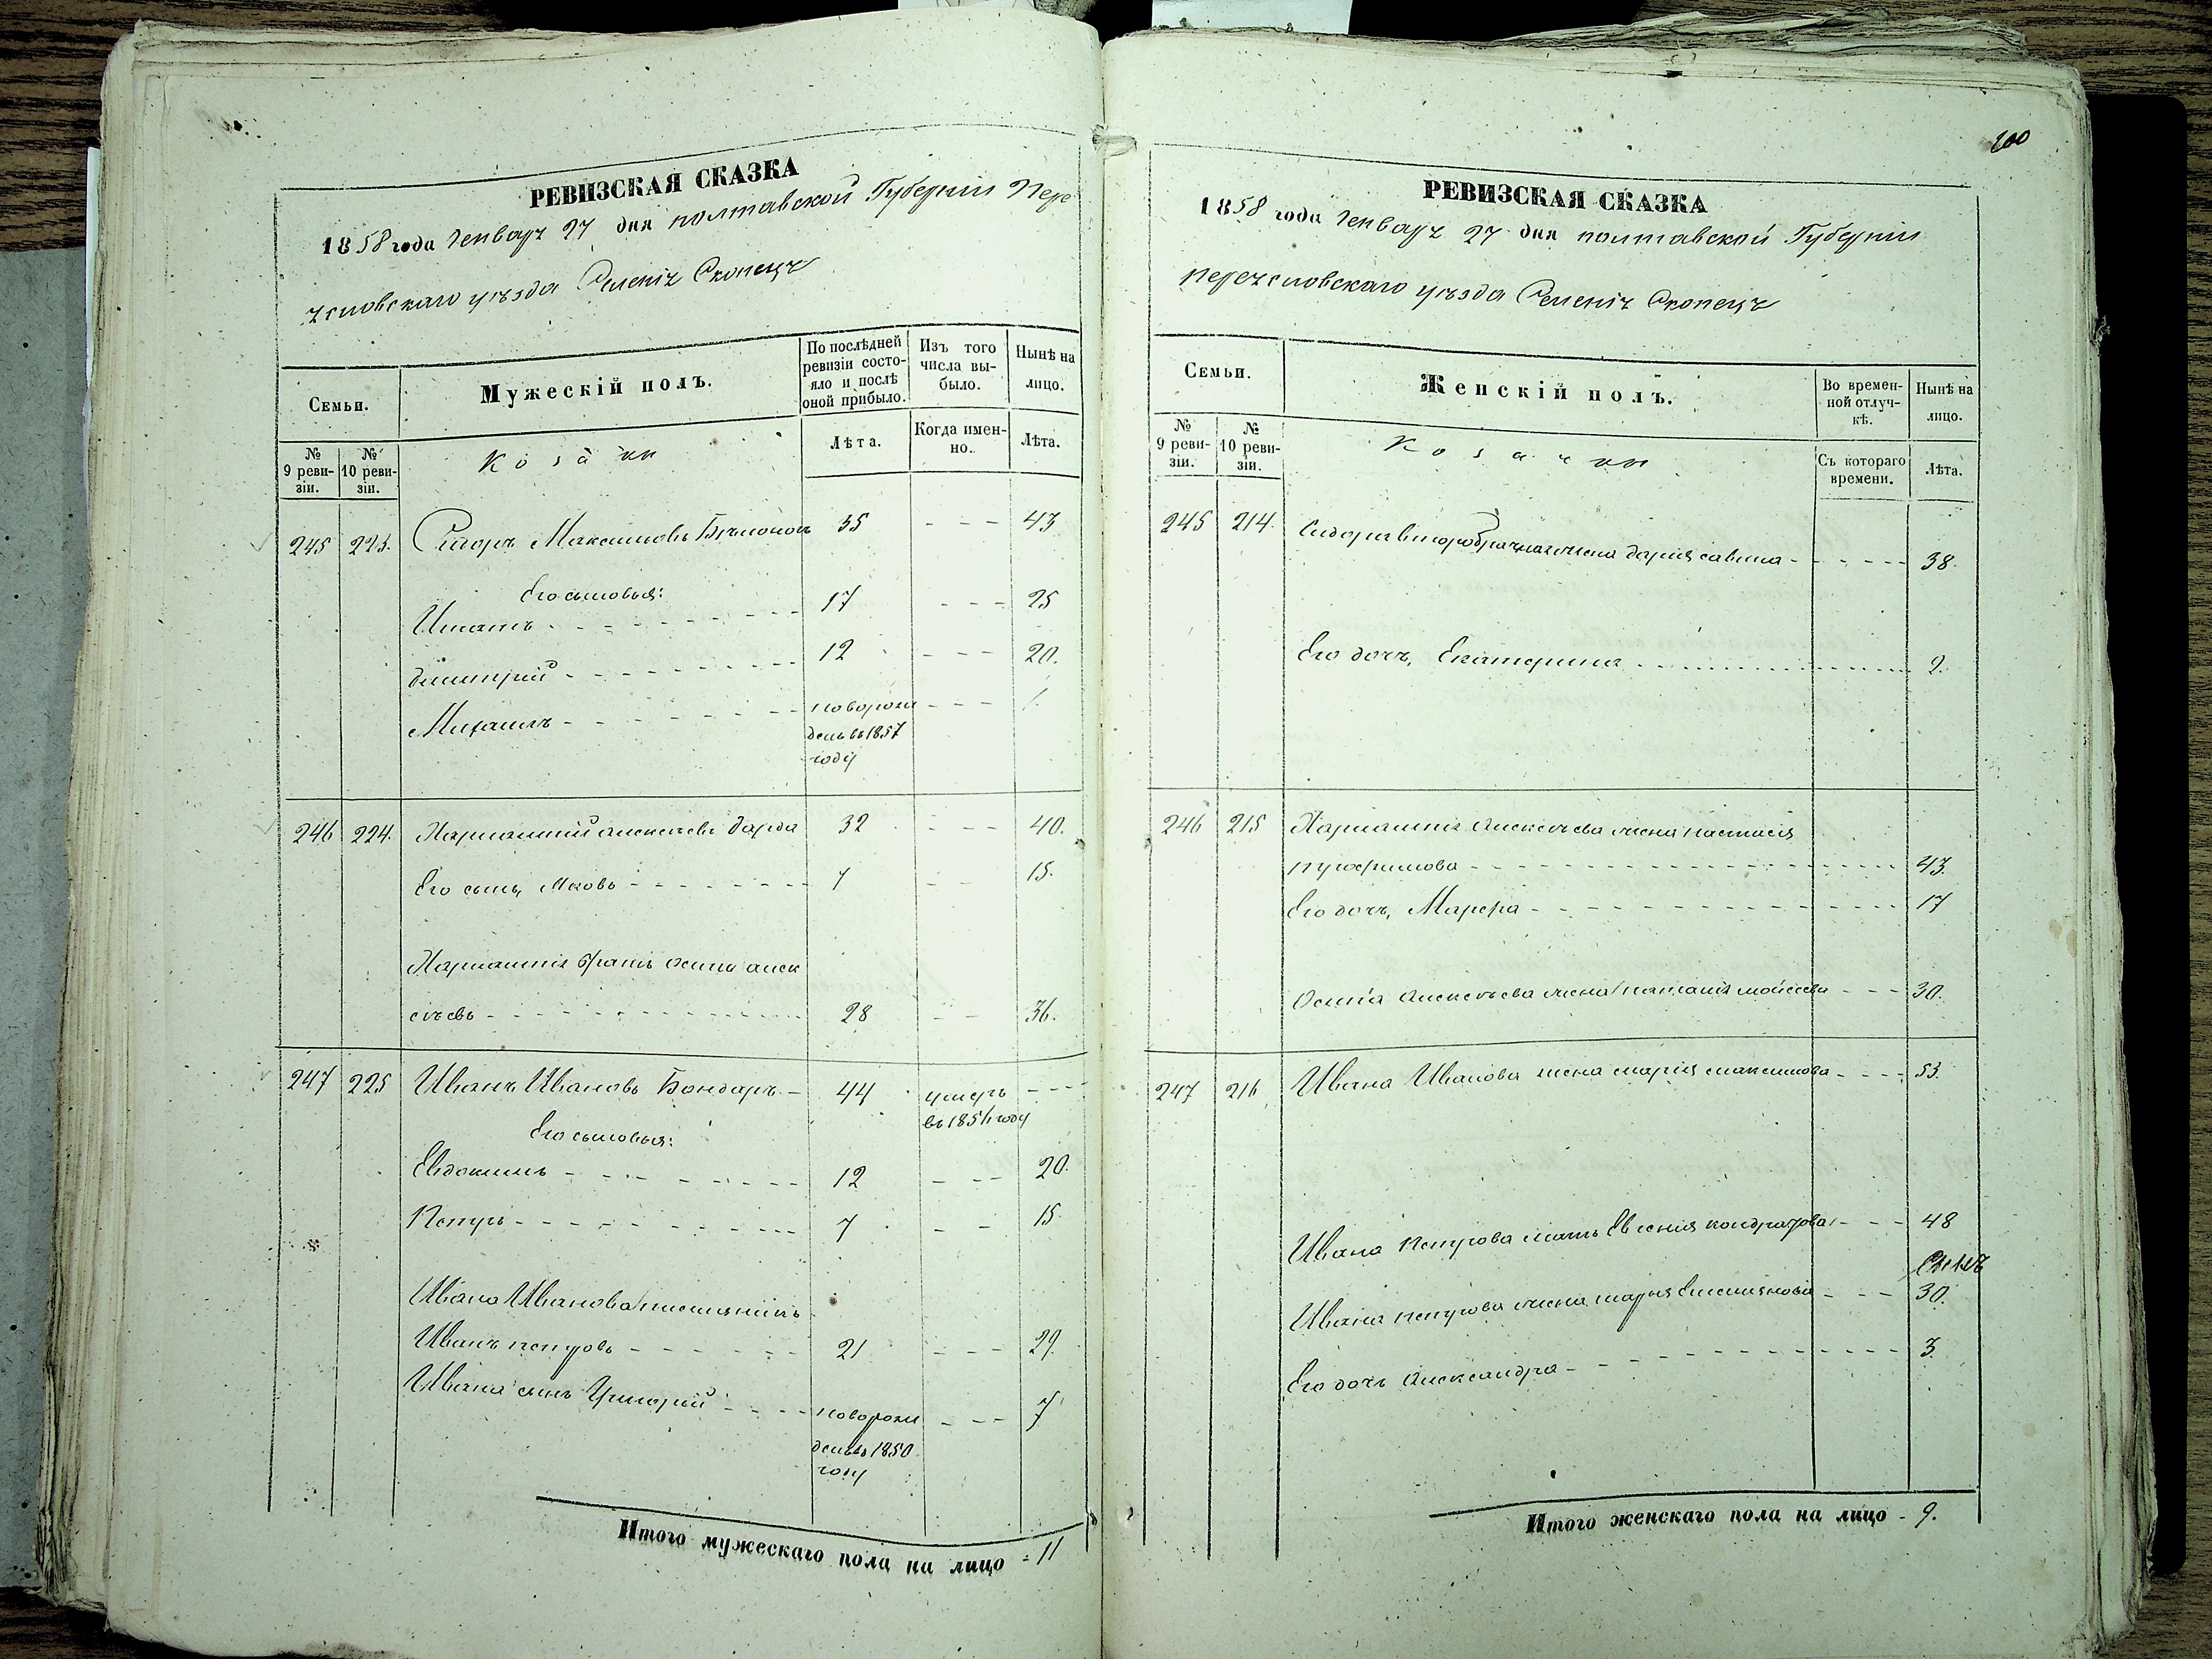 РЕВИЗСКАЯ СКАЗКА
1858 года Генваря 27 дня полтавской Губерніи Пере
яславскаго уѣзда Селенія Скопецъ
Семьи.
Мужескій полъ.
По послѣдней ревизіи состо-
яло и послѣ
оной прибыло.
Изъ того
числа вы-
было.
Нынѣ на
лицо.
№
9 реви-
зіи.
№
10 реви-
зіи.
Козаки
Лѣта.
Когда имен-
но.
Лѣта.
245 223. Сидоръ Максимовъ 35 - - - 43
Его сыновья:
Игнатъ - - - 17 - - - 25
Дмитрій - - - 12 - - - 20.
Михаилъ - - - новорож - - - 1.
денъ въ 1857
году
246 224. Харлампій Алексѣевъ 32 - - - 40.
Его сынъ, Яковъ - - - 7 - - 15.
Харлампія братъ Осипъ Алек
сѣевъ - - - 28 - - 36.
247 225 Иванъ Ивановъ Бондарь - 44 умеръ - - -
въ 1851 году
Его сыновья:
Евдокимъ - - - 12 - - - 20.
Петръ - - - 7 - - 15.
Ивана Иванова племянникъ
Иванъ Петровъ - - - 21 - - - 29.
Ивана сынъ Григорій - - - новорож - - - 7
денъ въ 1850
году
Итого мужескаго пола на лицо = 11
200
РЕВИЗСКАЯ СКАЗКА
1858 года Генваря 27 дня полтавской Губерніи
переяславскаго уѣзда Селенія Скопецъ
Семьи.
Женскій полъ.
Во времен-
ной отлуч-
кѣ.
Нынѣ на
лицо.
№
9 реви-
зіи.
№
10 реви-
зіи.
Козачки
Съ котораго
времени.
Лѣта.
245 214. Сидора второбрачная жена Дарія Савина - - - 38.
Его дочь, Екатерина - - - 9.
246 215 Харлампія Алексѣева жена Настасія
Трофимова - - - 43.
Его дочь, Марфа - - - 17
Осипа Алексѣева жена Наталія Мойсеева - - - 30.
247 216 Ивана Иванова жена Марія Максимова - - - 53.
Ивана Петрова мать Евгенія Кондратова - - - 48
Ивана Петрова жена Марія Емельянова - - - 30.
Его дочь Александра - - - 3.
Итого женскаго пола на лицо - 9.